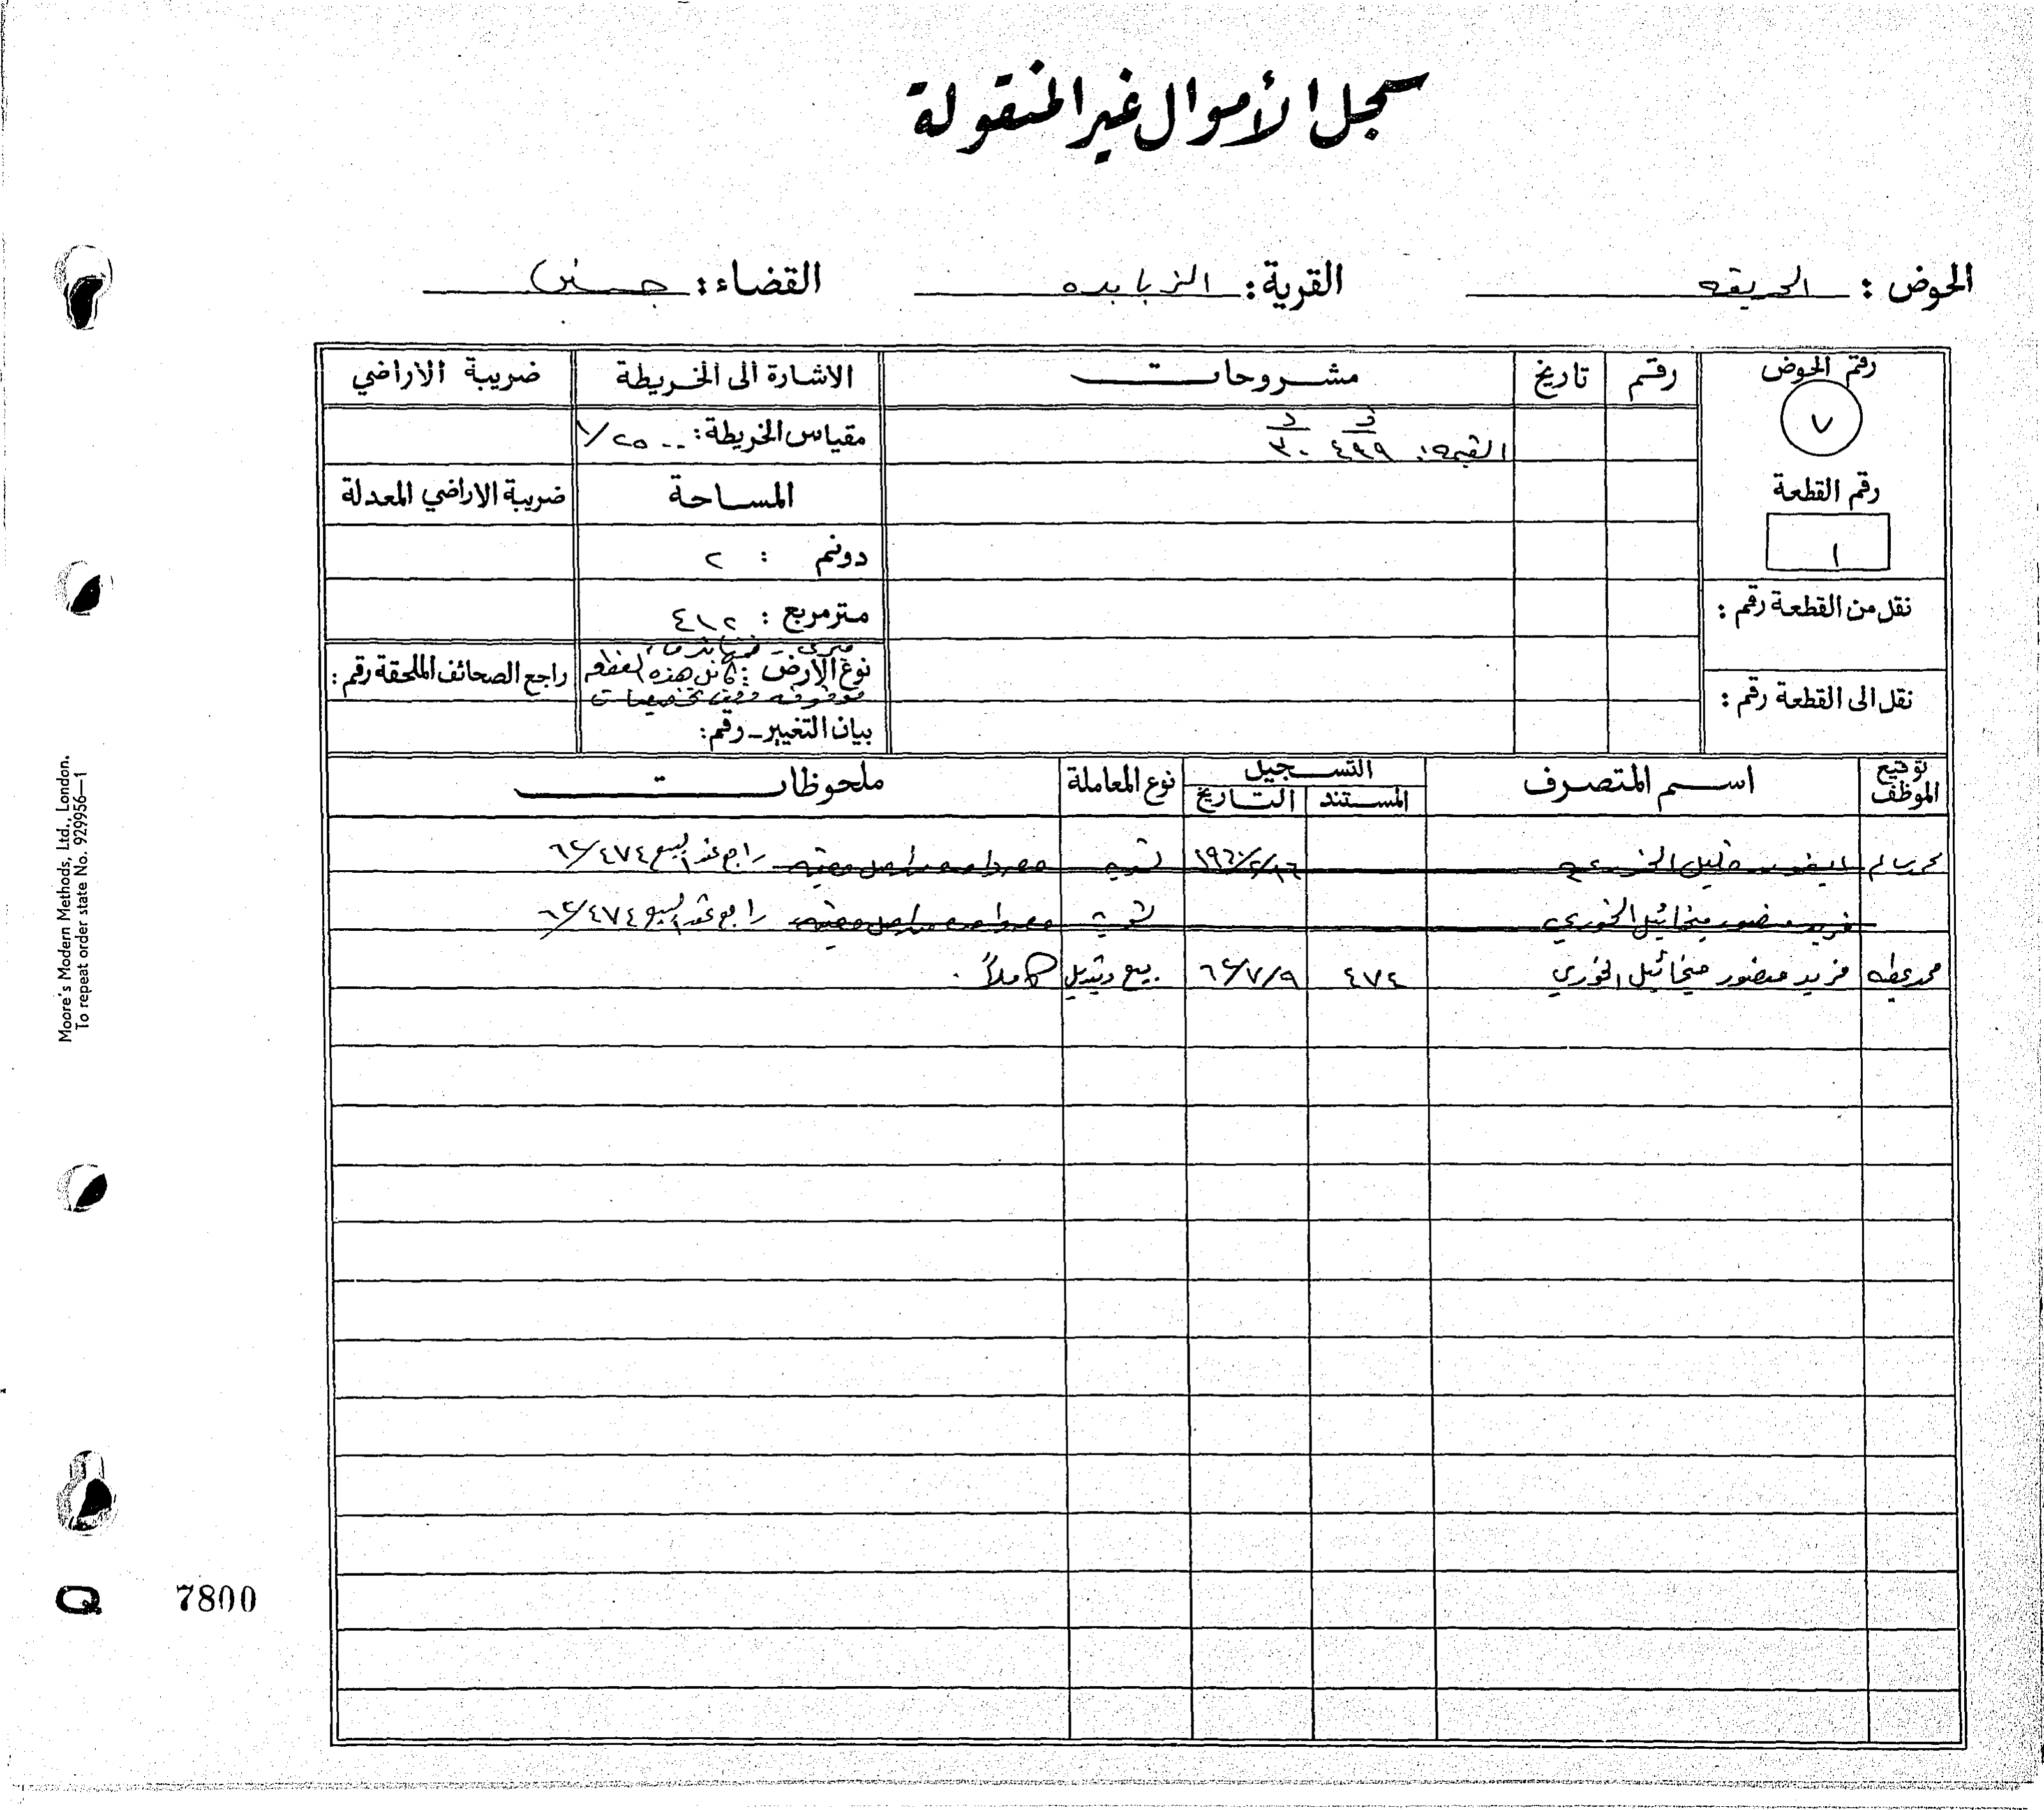 سجل الأموال غير المنقولة
الحوض : الحريقه القرية : الزبابده القضاء : جنين
رقم الحوض رقم تاريخ مشروحات الاشارة الى الخريطة ضريبة الاراضي
٧ القيمة : ٤٣٩ د ٣٠ مقياس الخريطة : ١/٢٥٠٠
رقم القطعة المساحة ضريبة الاراضي المعدلة
١ دونم : ٢
نقل من القطعة رقم : متر مربع : ٤١٢
نوع الأرض : كامل هذه القطعة راجع الصحائف الملحقة رقم :
موقوفه وقف تخصيصات
نقل الى القطعة رقم : بيان التغيير - رقم :
توقيع الموظف اسم المتصرف التسجيل نوع المعاملة ملحوظات
المستند التاريخ
خليل الخوري تسويه راجع عقد البيع ٦٢/٤٧٤
فريد منصور ميخائيل الخوري تسوية راجع عقد البيع ٦٢/٤٧٤
محمد عطيه فريد منصور ميخائيل الخوري ٤٧٤ ٦٢/٧/٩ بيع وتبديل كاملاً .
Moore's Modern Methods, Ltd., London.
To repeat order state No. 929956—1
Q 7800